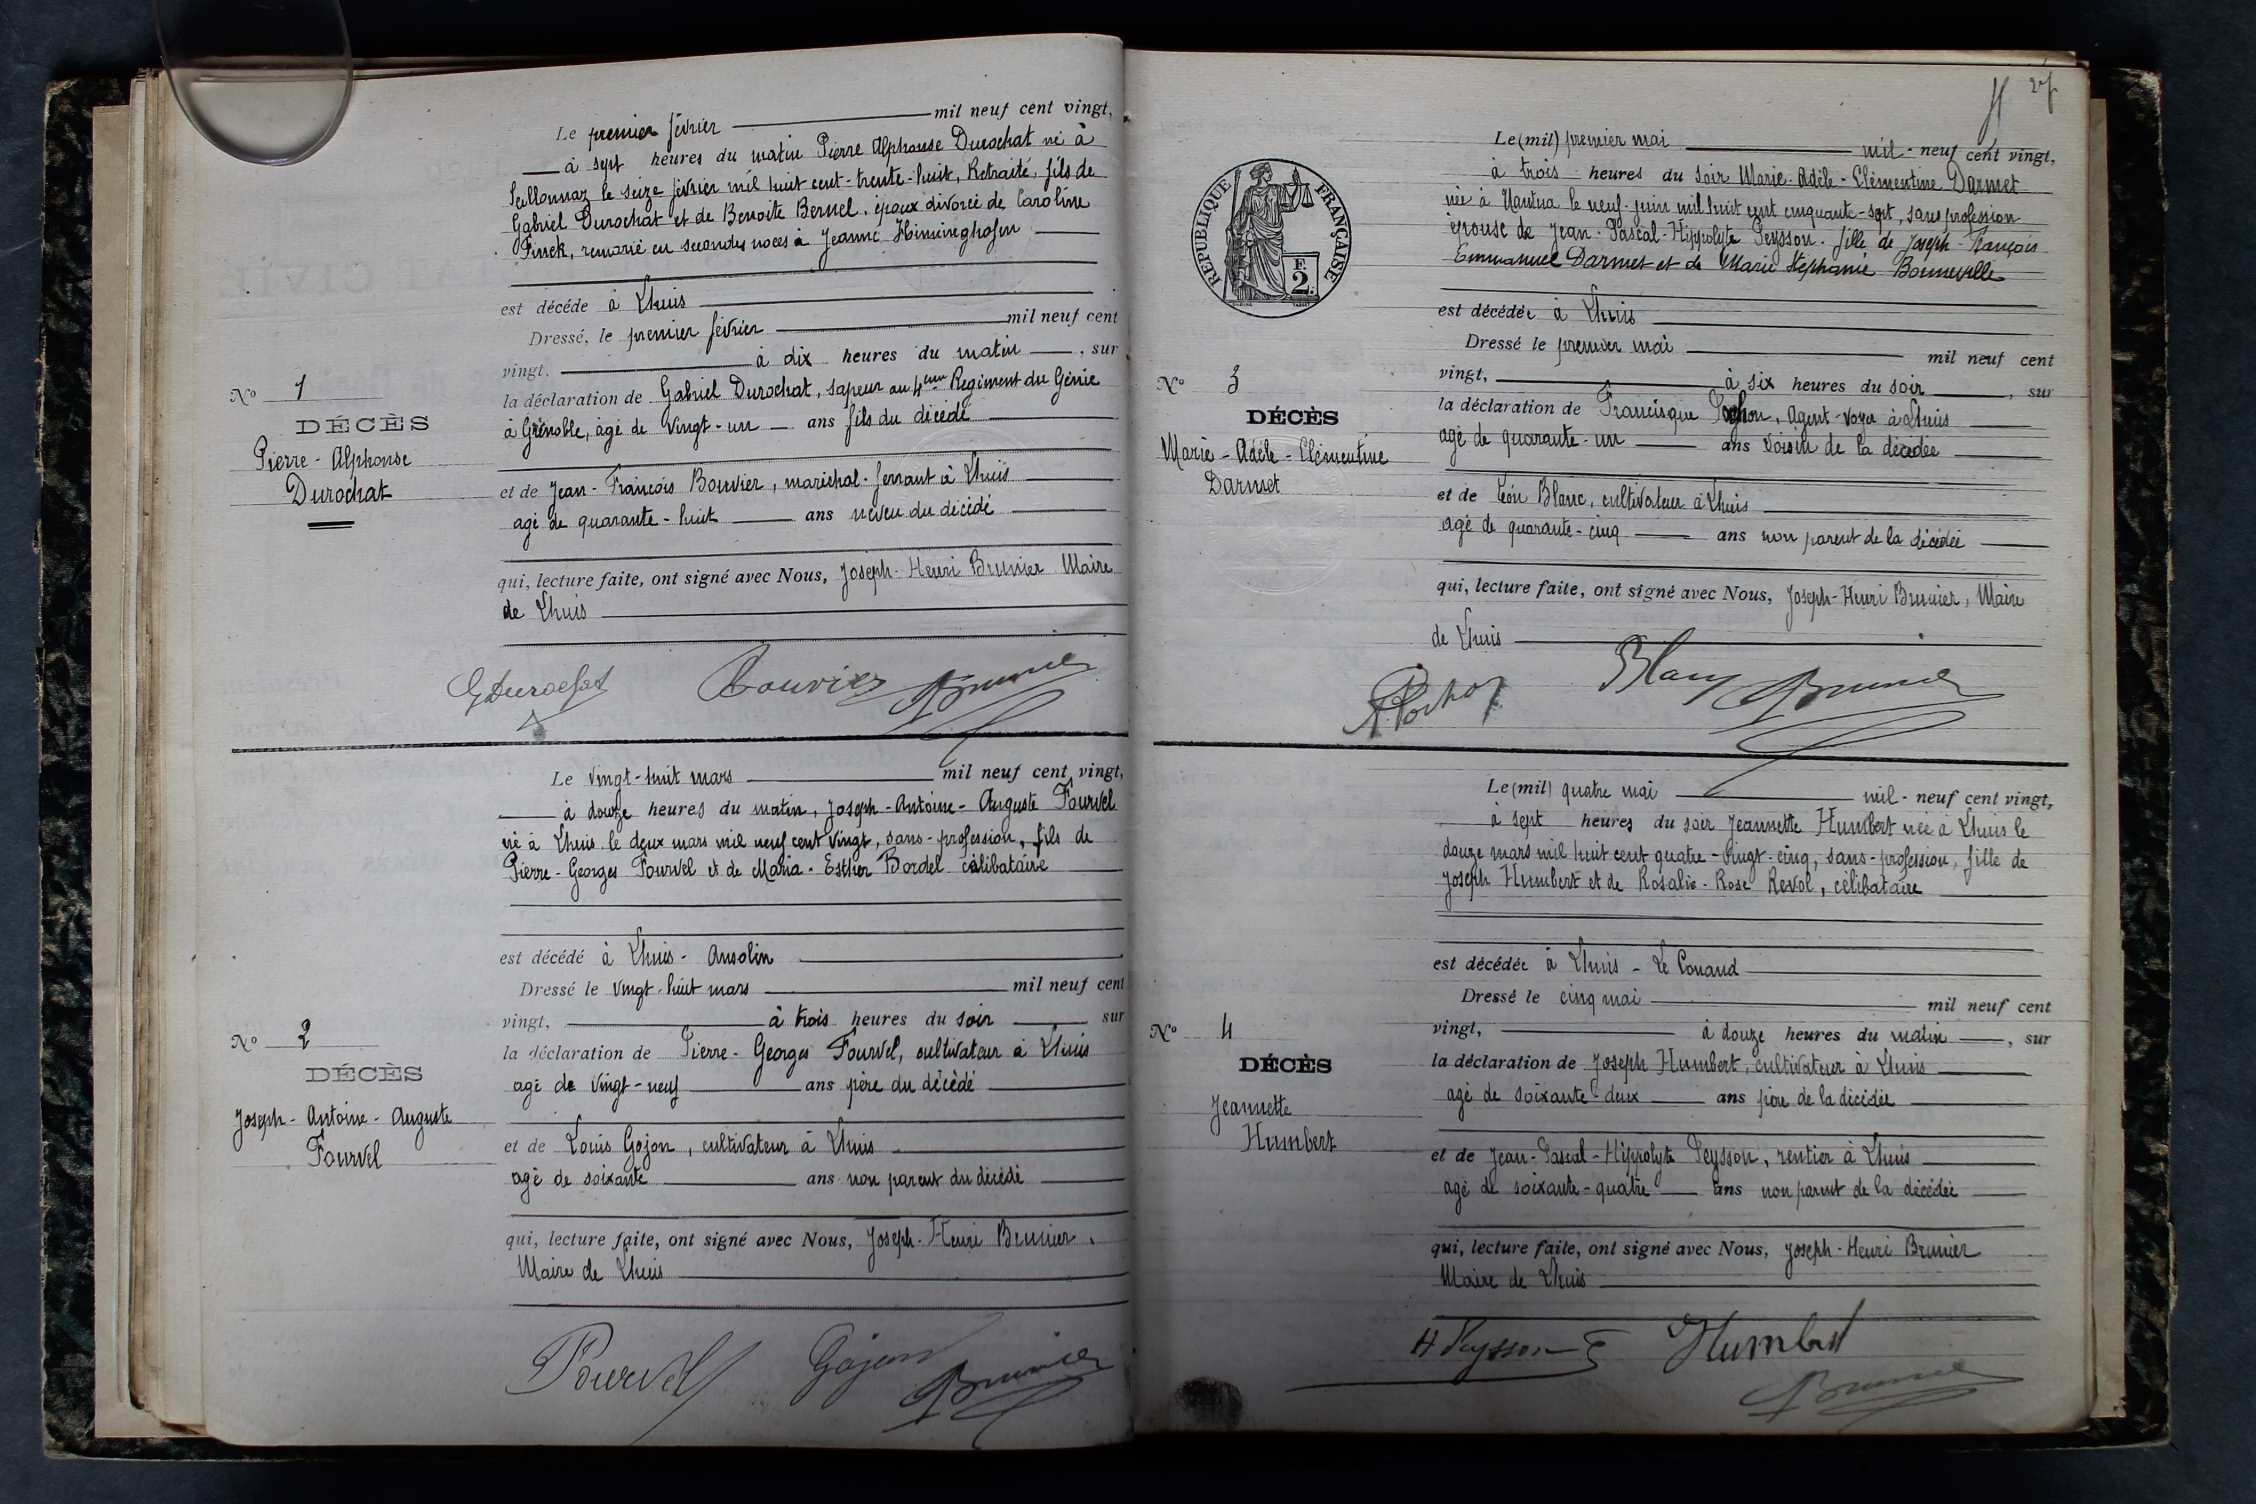 Le premier février mil neuf cent vingt,
à sept heures du matin Pierre Alphonse Durochat né à
le seize février mil huit cent-trente-huit, Retraité, fils de
Gabriel Durochat et de Benoite Bernel, époux divorcé de Caroline
Finck, remarié en secondes noces à Jeanne
est décéde à Lhuis
Dressé, le premier février mil neuf cent
vingt, à dix heures du matin, sur
la déclaration de Gabriel Durochat, sapeur au 4eme Régiment du Génie
à Grenoble, âgé de vingt-un ans fils du décédé
et de Jean-François Bouvier, maréchal-ferrant à Lhuis
agé de quarante-huit ans neveu du décédé
qui, lecture faite, ont signé avec Nous, Joseph-Henri Brunier Maire
de Lhuis
No 1
DÉCÈS
Pierre-Alphonse
Durochat
GDurochat Bouvier Brunier
Le vingt-huit mars mil neuf cent vingt,
à douze heures du matin, Joseph-Antoine-Auguste Fourvel
né à Lhuis le deux mars mil neuf cent vingt, sans-profession, fils de
Pierre-Georges Fourvel et de Maria-Esther Bordel célibataire
est décédé à Lhuis-Ansolin
Dressé le vingt-huit mars mil neuf cent
vingt, à trois heures du soir sur
la déclaration de Pierre-Georges Fourvel, cultivateur à Lhuis
agé de vingt-neuf ans père du décédé
et de Louis Gojon, cultivateur à Lhuis
agé de soixante ans non parent du décédé
qui, lecture faite, ont signé avec Nous, Joseph-Henri Brunier,
Maire de Lhuis
No 2
DÉCÈS
Joseph-Antoine-Auguste
Fourvel
Fourvel Gojon Brunier
RÉPUBLIQUE FRANÇAISE
F.
2.
Le (mil) premier mai mil-neuf cent vingt,
à trois heures du soir Marie-Adèle-Clémentine Darmet
née à Nantua le neuf-juin mil huit cent cinquante-sept, sans profession
épouse de Jean-Pascal-Hippolyte Peysson, fille de Joseph-François
Emmanuel Darmet et de Marie Stéphanie Bonneville
est décédée à Lhuis
Dressé le premier mai mil neuf cent
vingt, à six heures du soir, sur
la déclaration de Francisque Pochon, Agent-Voyer à Lhuis
agé de quarante-un ans voisin de la décédée
et de Léon Blanc, cultivateur à Lhuis
agé de quarante-cinq ans non parent de la décédée
qui, lecture faite, ont signé avec Nous, Joseph-Henri Brunier, Maire
de Lhuis
No 3
DÉCÈS
Marie-Adèle-Clémentine
Darmet
Pochon Blanc Brunier
Le (mil) quatre mai mil-neuf cent vingt,
à sept heures du soir Jeannette Humbert née à Lhuis le
douze mars mil huit cent quatre-vingt-cinq, sans-profession, fille de
Joseph Humbert et de Rosalie-Rose Revol, célibataire
est décédée à Lhuis-Le Conand
Dressé le cinq mai mil neuf cent
vingt, à douze heures du matin, sur
la déclaration de Joseph Humbert, cultivateur à Lhuis
agé de soixante-deux ans père de la décédée
et de Jean-Pascal-Hippolyte Peysson, rentier à Lhuis
agé de soixante-quatre ans non parent de la décédée
qui, lecture faite, ont signé avec Nous, Joseph-Henri Brunier
Maire de Lhuis
No 4
DÉCÈS
Jeannette
Humbert
H Peysson Humbert
Brunier